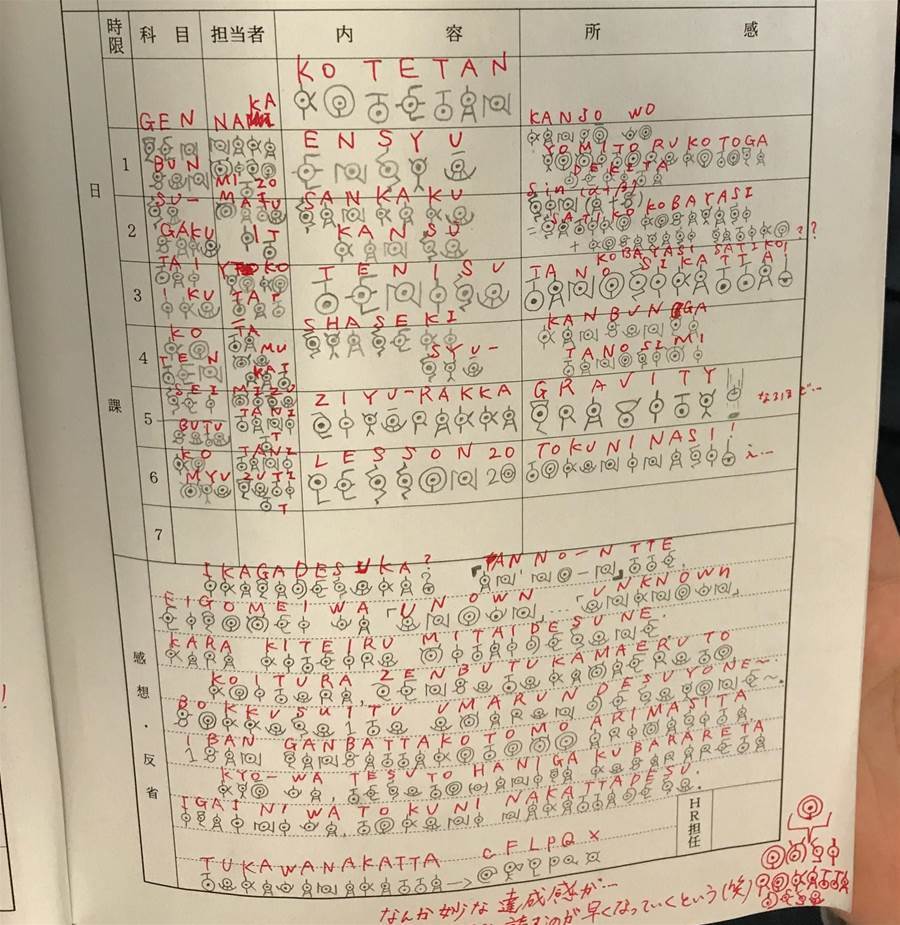 時限 科目 担当者 内容 所感
KO TETAN
GEN BUN
NAKA MI ZO
1
ENSYU
KANSO WO
YOMITORUKOTOGA
DEKITA
SU-GAKU
2
SANKAKU
KANSU
SATIKO KOBAYASI
KOBAYASI SATIKO!
TAI I KU
3
TENISU
TANOSIKATTA!
KO TEN
4
SHASEKI
SYU-
KANBUN GA
TANOSIMI
SEI BUTU
5
ZIYU-RAKKA
GRAVITY
なるほど…
KO MYU
6
LESSON 20
TOKUNINASI!
え…
7
日課
IKAGADESUKA? 「ANNO-N」TTE
EIGOMEI WA 「UNOWN」…「UNKNOWN」
KARA KITEIRU MITAIDESUNE.
KOITURA, ZENBUTUKAMAERUTO
BOKKUSUITU UMARUNDESUYONE~.
1BAN GANBATTAKOTOMO ARIMASITA
KYO-WA, TESUTO HANIGAKUBARARETA
IGAINIWA, TOKUNI NAKATTADESU.
TUKAWANAKATTA → CFLPQX
感想・反省
HR担任
なんか妙な達成感が…
読むのが早くなっていくという(笑)